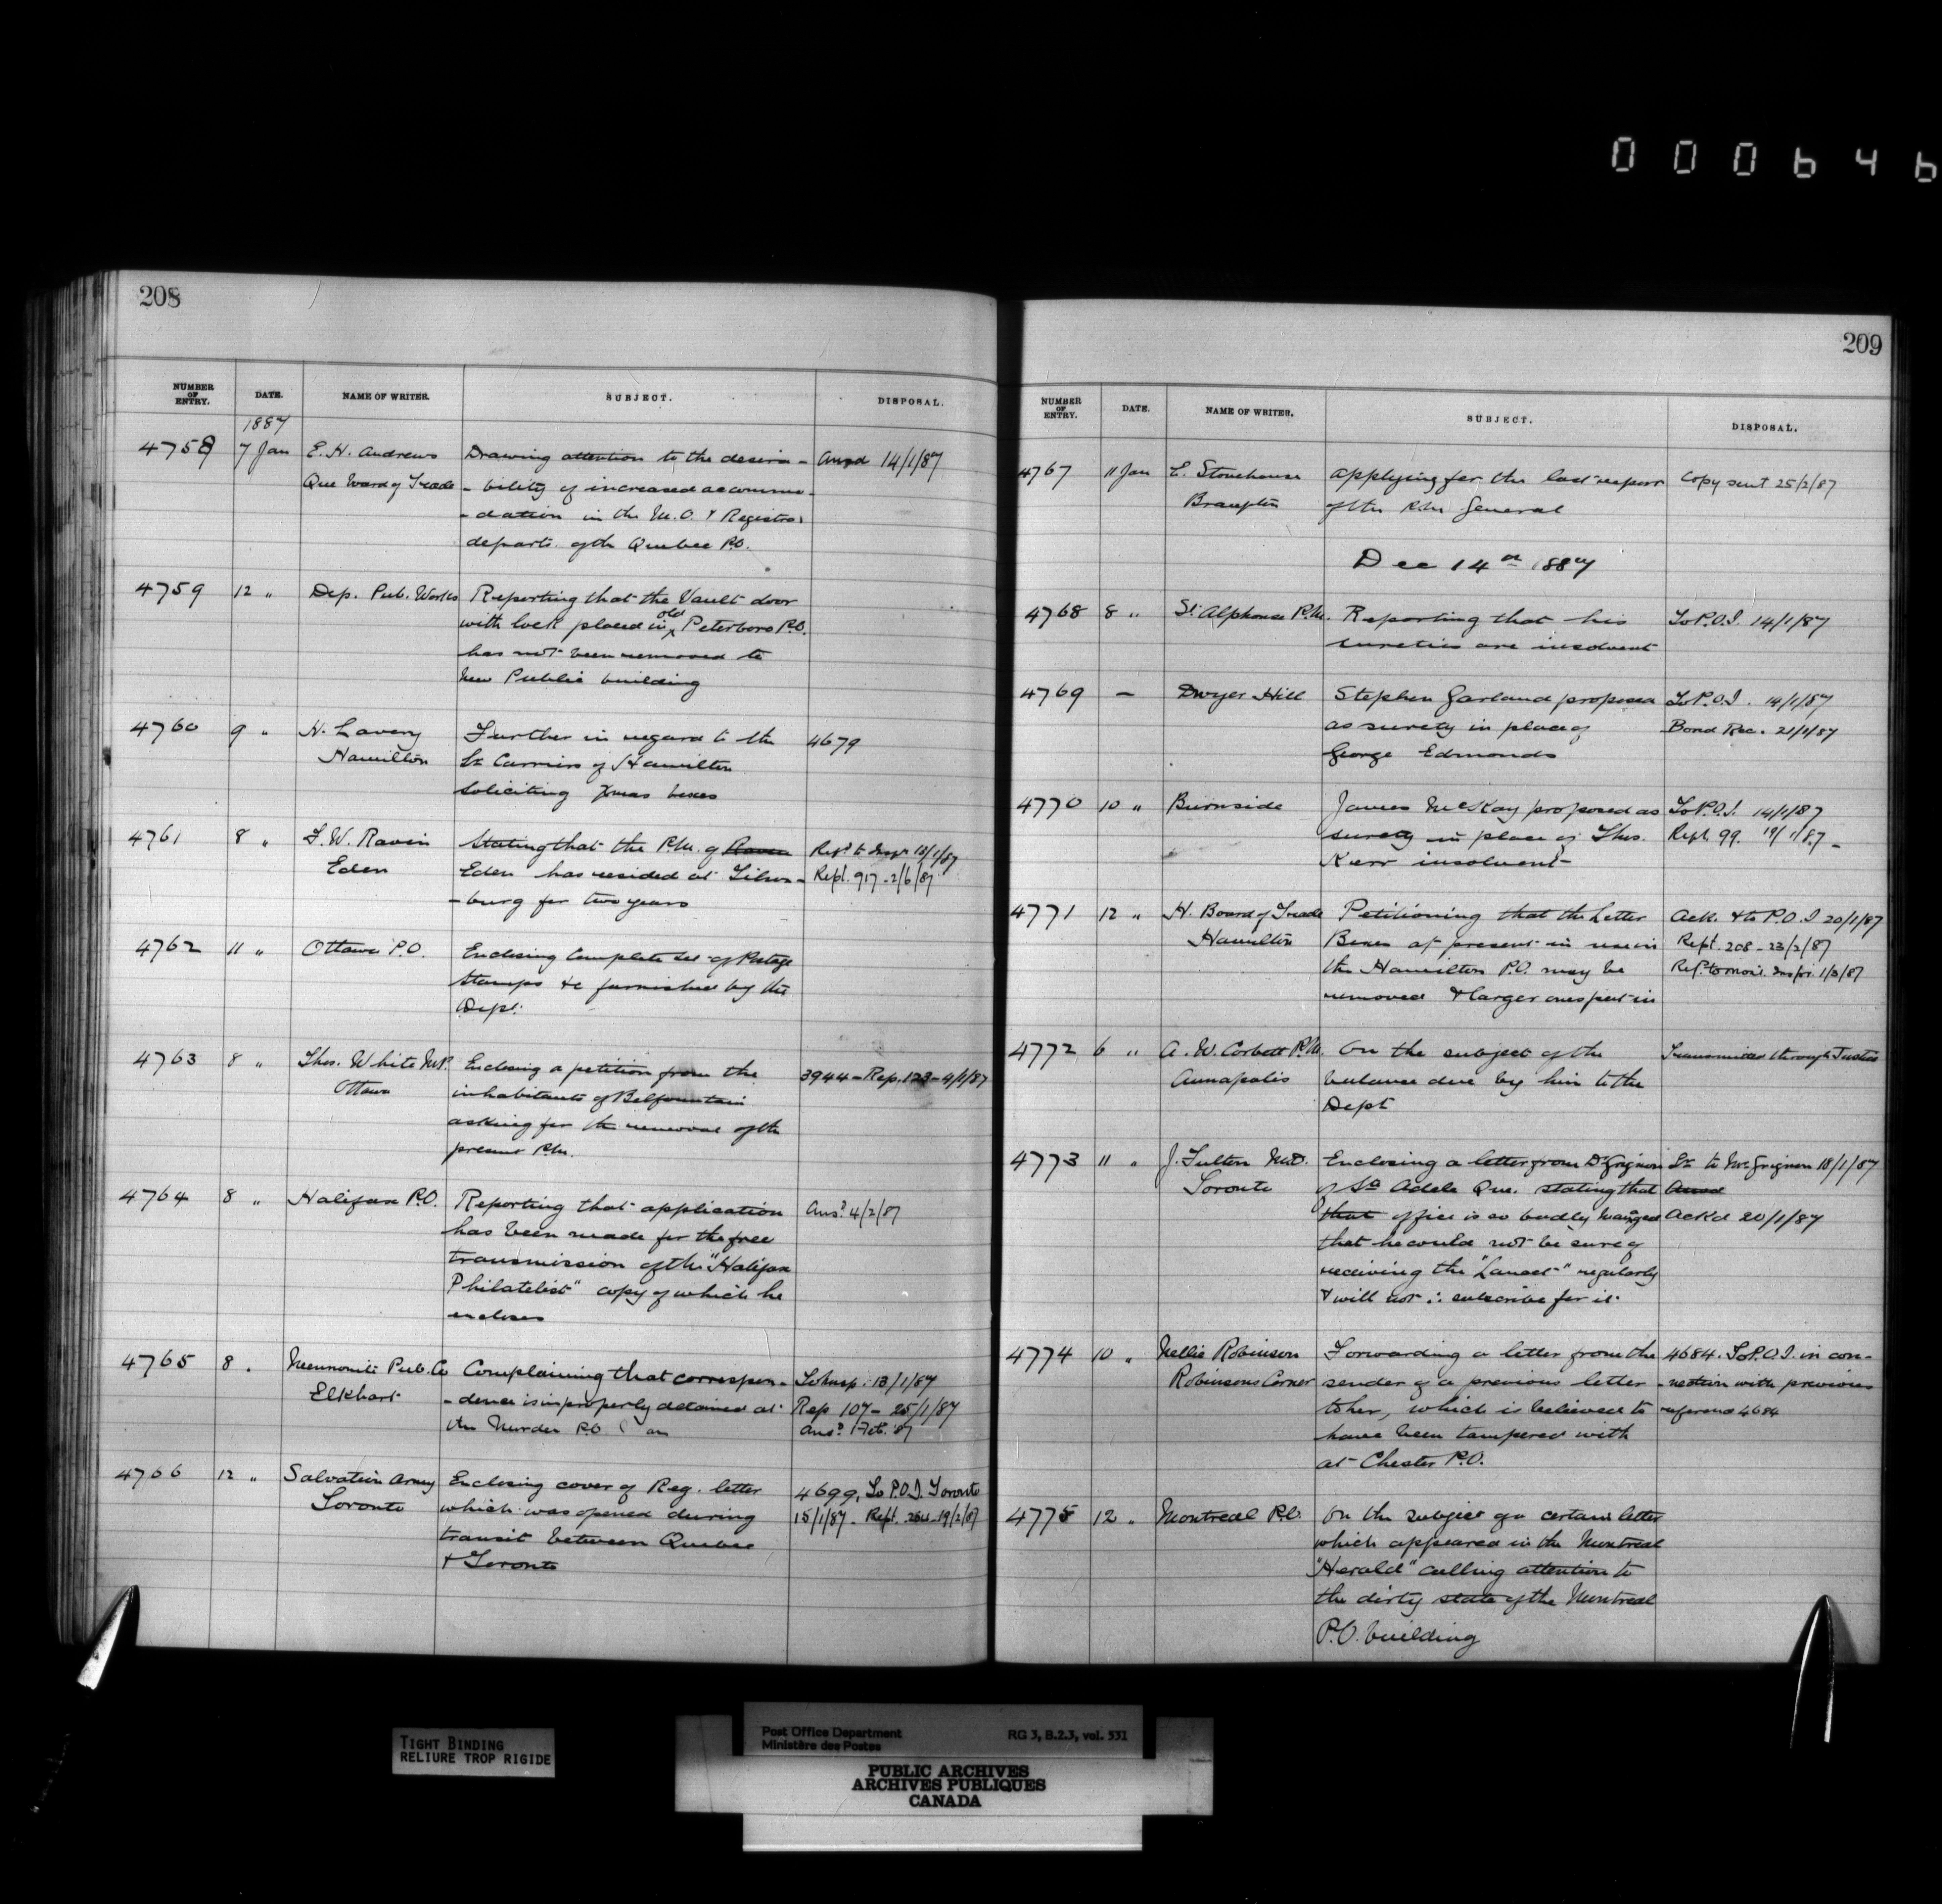 000646
208
NUMBER OF ENTRY. DATE. NAME OF WRITER. SUBJECT. DISPOSAL.
1887
4758 7 Jan E. H. Andrews Drawing attention to the desira- Ansd 14/1/87
Que Board of Trade -bility of increased accommo-
-dation in the M.O. & Registra
departs. of the Quebec P.O.
4759 12 " Dep. Pub. Works Reporting that the Vault door
with lock placed in old Peterboro P.O.
has not been removed to
New Public building
4760 9 " H. Lavery Further in regard to the 4679
Hamilton Lr Carriers of Hamilton
soliciting Xmas boxes
4761 8 " Ravin Stating that the P.M. of Raven Refd to Inspr 13/1/87
Eden Eden has resided at Tilson- Rept. 917 - 2/6/87
-burg for two years
4762 11 " Ottawa P.O. Enclosing Complete set of Postage
Stamps &c furnished by the
Dept.
4763 8 " Thos. White M.P. Enclosing a petition from the 3944 - Rep. 123 - 4/1/87
Ottawa inhabitants of Belfountain
asking for the removal of the
present P.M.
4764 8 " Halifax P.O. Reporting that application Ansd 4/2/87
has been made for the free
transmission of the "Halifax
Philatelist" copy of which he
encloses
4765 8 " Mennonite Pub. Co Complaining that correspon- To Insp. 13/1/87
Elkhart -dence is improperly detained at Rep 107 - 25/1/87
the P.O. Ansd 1 Feb. 87
4766 12 " Salvation Army Enclosing cover of Reg. letter 4699, To P.O.I. Toronto
Toronto which was opened during 15/1/87 - Rept. 19/2/87
transit between Quebec
& Toronto
209
NUMBER OF ENTRY. DATE. NAME OF WRITER. SUBJECT. DISPOSAL.
4767 11 Jan E. Stonehouse applying for the last report Copy sent 25/2/87
Brampton of the P.M. General
Dec 14th 1887
4768 8 " St. Alphonse P.M. Reporting that his To P.O.I. 14/1/87
sureties are insolvent
4769 - Dwyer Hill Stephen Garland proposed To P.O.I. 14/1/87
as surety in place of Bond Rec. 21/1/87
George Edmonds
4770 10 " Burnside James McKay proposed as To P.O.I. 14/1/87
surety in place of Thos. Rept. 99. 19/1/87 -
Kerr insolvent
4771 12 " H. Board of Trade Petitioning that the Letter Ack. & to P.O.I 20/1/87
Hamilton Boxes at present in use in Rept. 208 - 23/2/87
the Hamilton P.O. may be Ref. to Inspr. 1/3/87
removed & larger ones put in
4772 6 " A. W. Corbett P.M. On the subject of the Transmitted through Justice
Annapolis balance due by him to the
Dept
4773 11 " J. Fulton M.D. Enclosing a letter from Dr Grignon Lr to Mr Grignon 18/1/87
Toronto of Ste Adele Que. stating that Ansd
that office is so badly managed Ackd 20/1/87
that he could not be sure of
receiving the "Lancet" regularly
& will not ∴ subscribe for it.
4774 10 " Nellie Robinson Forwarding a letter from the 4684. To P.O.I. in con-
Robinsons Corner sender of a previous letter -nection with previous
to her, which is believed to reference 4684
have been tampered with
at Chester P.O.
4775 12 " Montreal P.O. On the subject of a certain letter
which appeared in the Montreal
"Herald" calling attention to
the dirty state of the Montreal
P.O. building
TIGHT BINDING
RELIURE TROP RIGIDE
Post Office Department RG 3, B.2.3, vol. 531
Ministère des Postes
PUBLIC ARCHIVES
ARCHIVES PUBLIQUES
CANADA